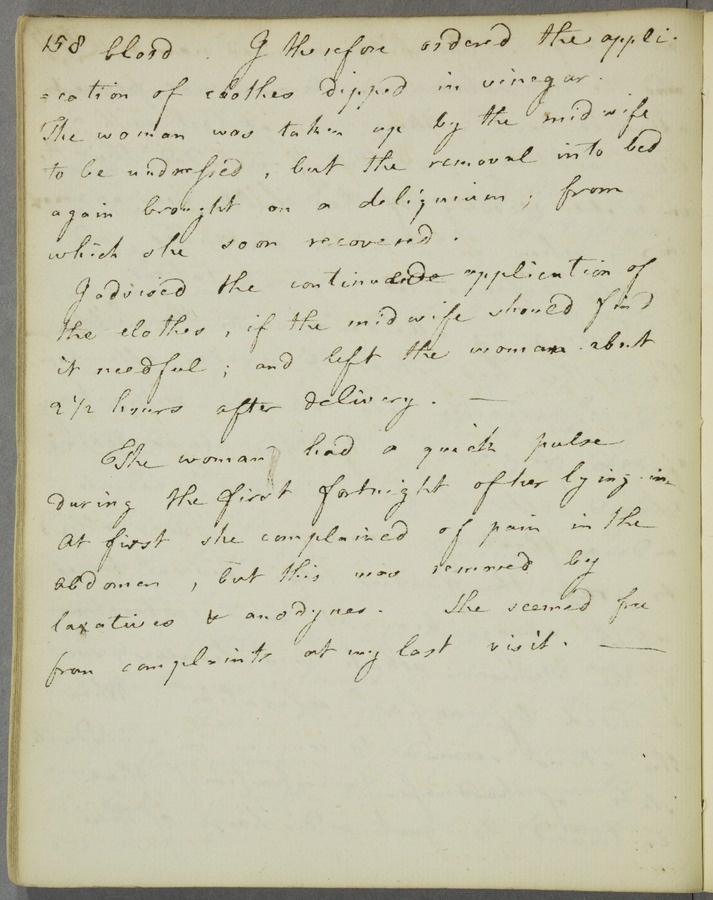 158 blood. I therefore ordered the appli-
=cation of clothes dipped in vinegar.
The woman was taken up by the midwife
to be undressed, but the removal into bed
again brought on a deliquium; from
which she soon recovered.
I advised the continuede application of
the clothes, if the midwife should find
it needful; and left the woman about
2 1/2 hours after delivery. —
The woman had a quick pulse
during the first fortnight of her lying-in.
At first she complained of pain in the
abdomen, but this was removed by
laxatives & anodynes. She seemed free
from complaints at my last visit. —